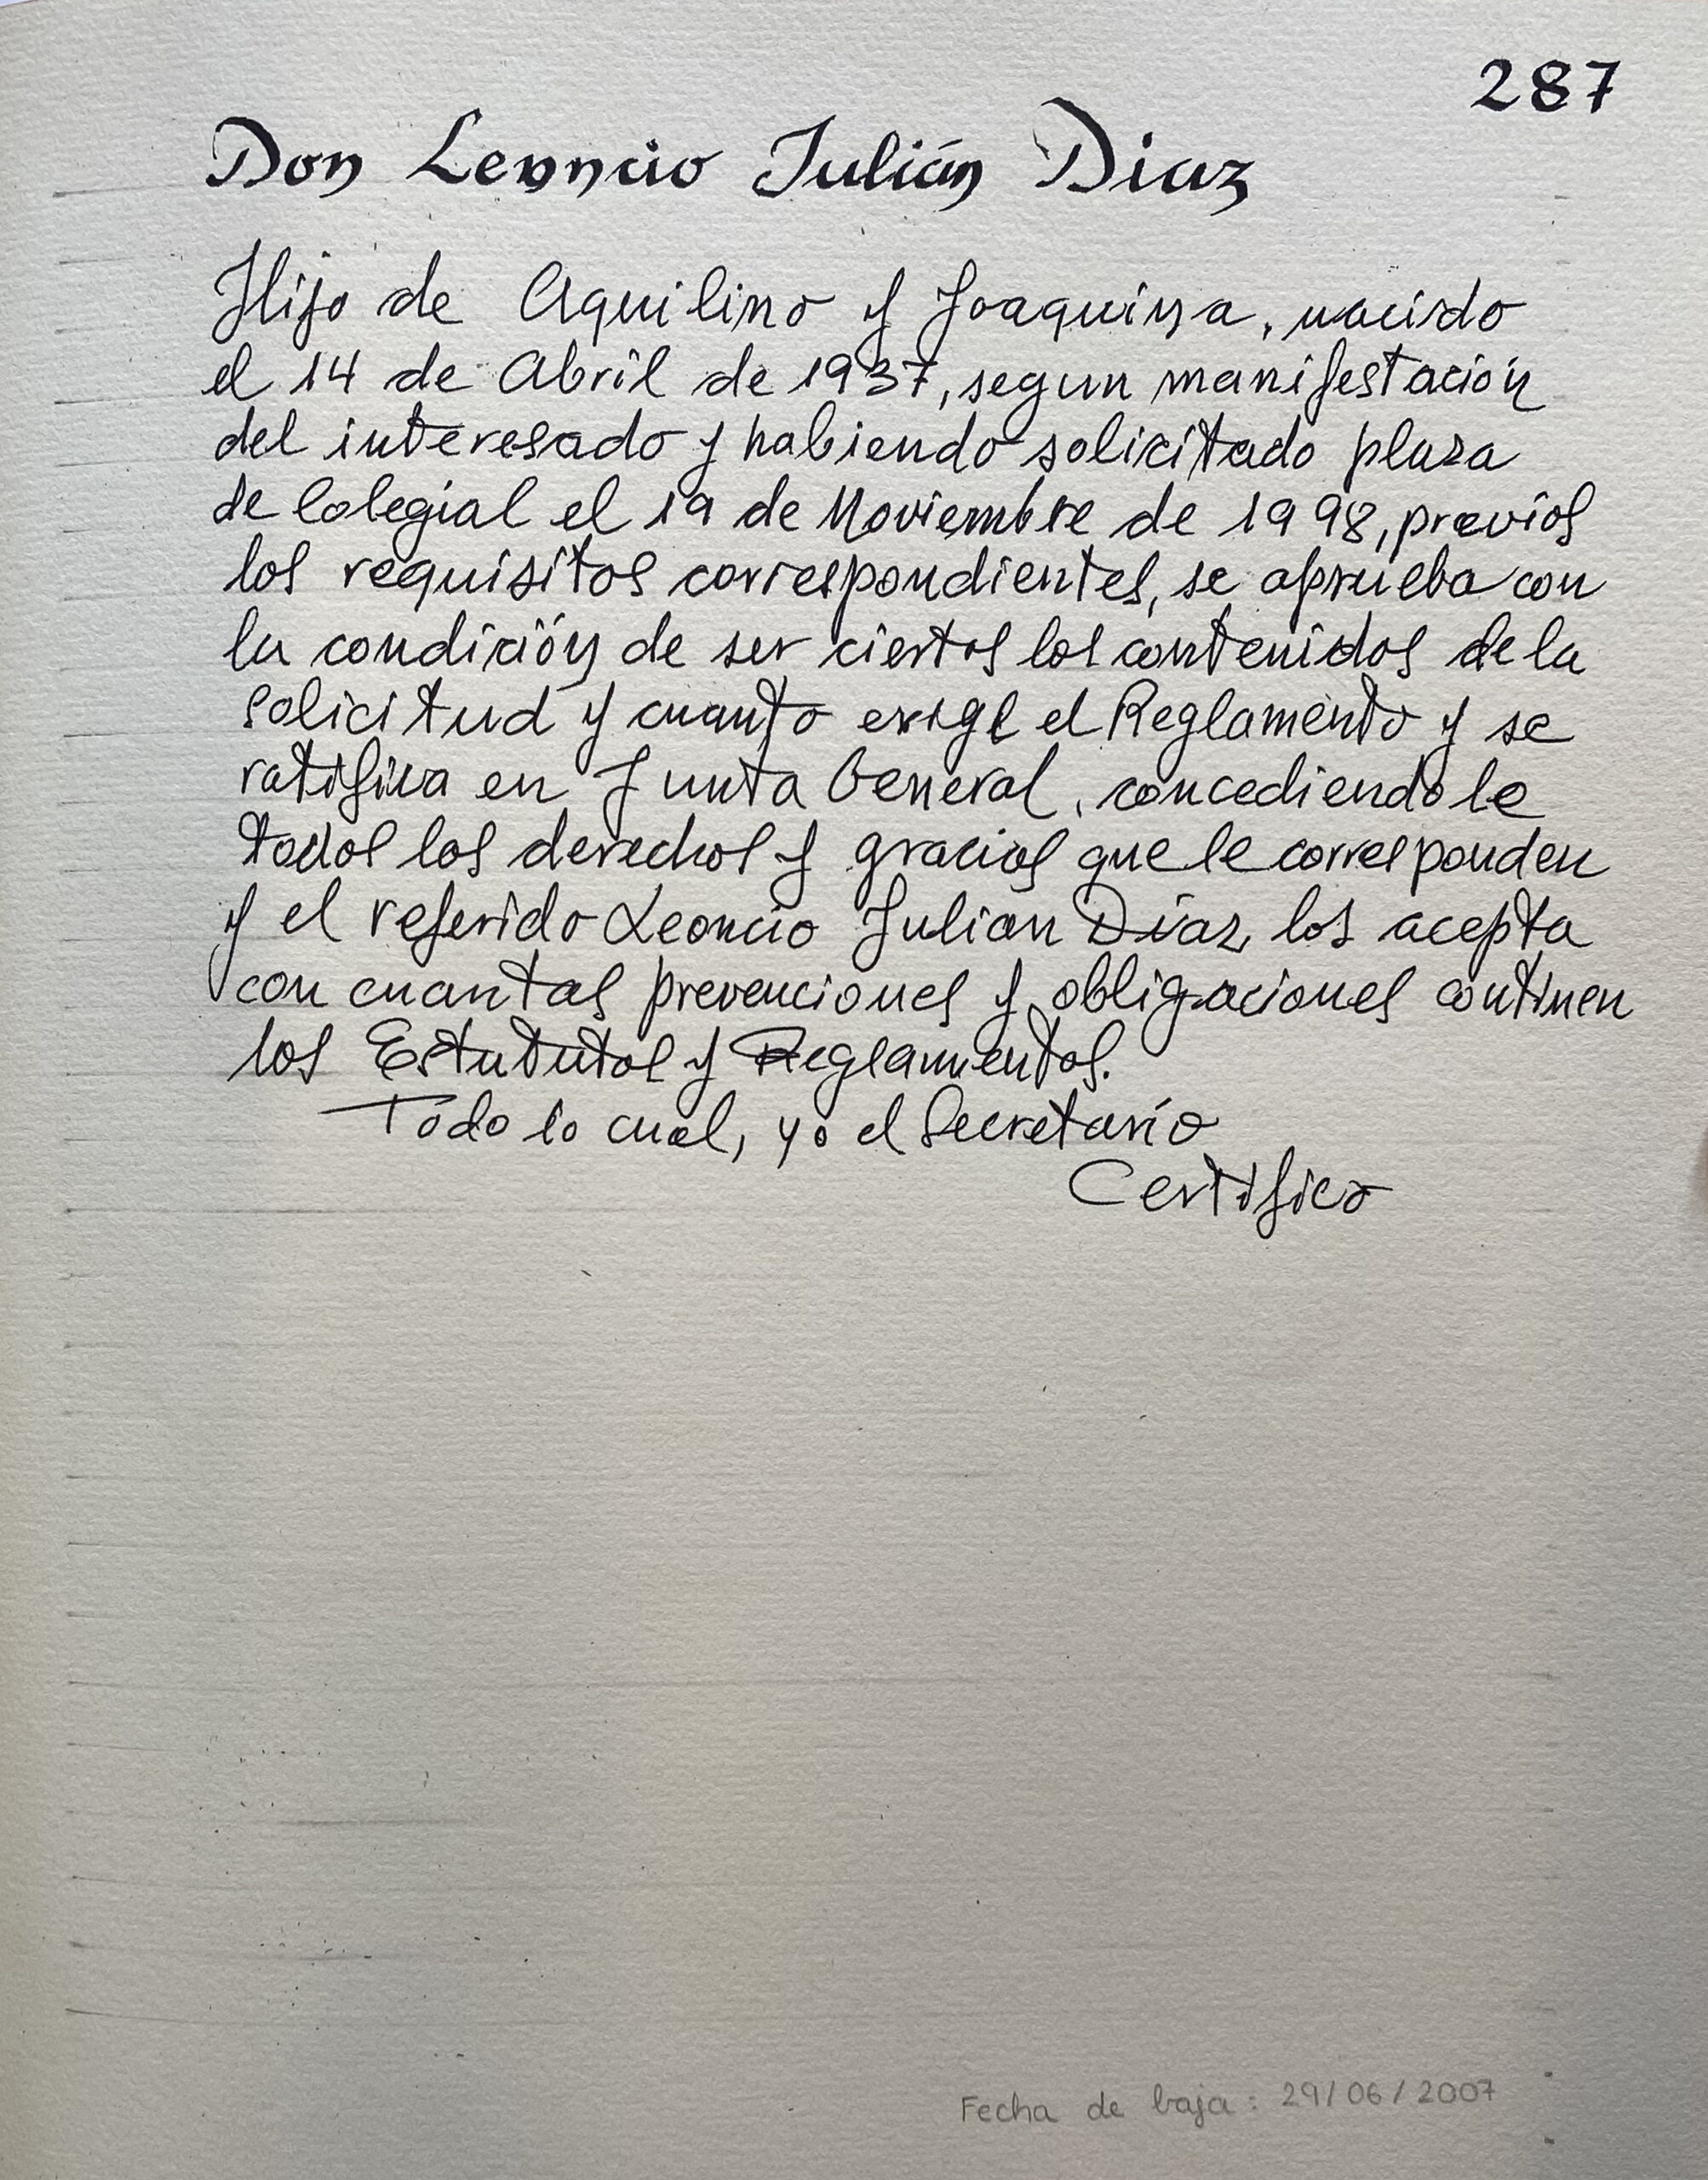 287
Don Leoncio Julián Diaz
Hijo de Aquilino y Joaquina, nacido
el 14 de Abril de 1937, segun manifestación
del interesado y habiendo solicitado plaza
de Colegial el 19 de Noviembre de 1998, previos
los requisitos correspondientes, se aprueba con
la condición de ser ciertos los contenidos de la
solicitud y cuanto exige el Reglamento y se
ratifica en Junta General, concediendole
todos los derechos y gracias que le corresponden
y el referido Leoncio Julian Díaz, los acepta
con cuantas prevenciones y obligaciones continen
los Estatutos y Reglamentos.
Todo lo cual, yo el Secretario
Certifico
Fecha de baja: 29/06/2007